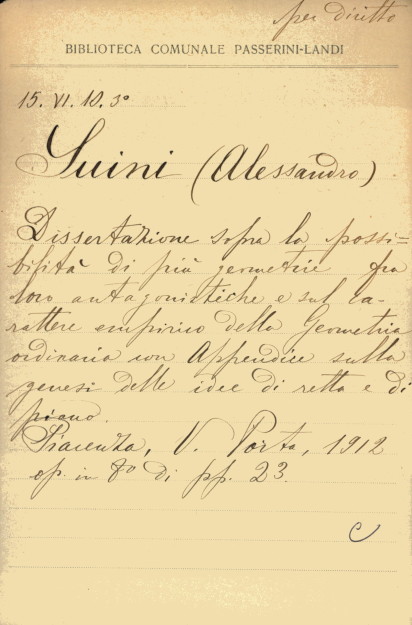 per diritto
BIBLIOTECA COMUNALE PASSERINI-LANDI
15. VI. 10. 3º
Suini (Alessandro)
Dissertazione sopra la possi=
bilità di più geometrie fra
loro antagonistiche e sul ca-
rattere empirico della Geometria
ordinaria con Appendice sulla
genesi delle idee di retta e di
piano.
Piacenza, V. Porta, 1912
op. in 8º di pp. 23.
C